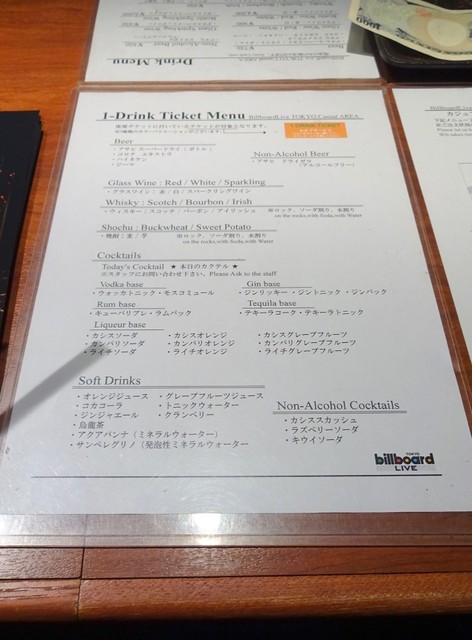 Drink Menu
1-Drink Ticket Menu BillboardLive TOKYO Casual AREA
座席チケットに付いているチケットが対象となります。
1 DRINK TICKET
Beer
・アサヒ スーパードライ（ボトル）
・コロナ エキストラ
・ハイネケン
・ジーマ
Non-Alcohol Beer
・アサヒ ドライゼロ
（アルコールフリー）
Glass Wine : Red / White / Sparkling
・グラスワイン：赤 / 白 / スパークリングワイン
Whisky : Scotch / Bourbon / Irish
・ウィスキー：スコッチ / バーボン / アイリッシュ ※ロック、ソーダ割り、水割り
on the rocks,with Soda,with Water
Shochu : Buckwheat / Sweet Potato
・焼酎：麦 / 芋 ※ロック、ソーダ割り、水割り
on the rocks,with Soda,with Water
Cocktails
Today's Cocktail ★ 本日のカクテル ★
※スタッフにお問い合わせ下さい。Please Ask to the staff
Vodka base
・ウォッカトニック・モスコミュール
Gin base
・ジンリッキー・ジントニック・ジンバック
Rum base
・キューバリブレ・ラムバック
Tequila base
・テキーラコーク・テキーラトニック
Liqueur base
・カシスソーダ ・カシスオレンジ ・カシスグレープフルーツ
・カンパリソーダ ・カンパリオレンジ ・カンパリグレープフルーツ
・ライチソーダ ・ライチオレンジ ・ライチグレープフルーツ
Soft Drinks
・オレンジジュース ・グレープフルーツジュース
・コカコーラ ・トニックウォーター
・ジンジャエール ・クランベリー
・烏龍茶
・アクアパンナ（ミネラルウォーター）
・サンペレグリノ（発泡性ミネラルウォーター
Non-Alcohol Cocktails
・カシススカッシュ
・ラズベリーソーダ
・キウイソーダ
TOKYO
billboard
LIVE